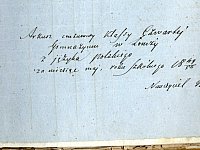 Arkusz cenzurowy klassy Czwartej
Gimnazyum w Łomży
z języka polskiego
za miesiąc maj, roku szkolnego 18